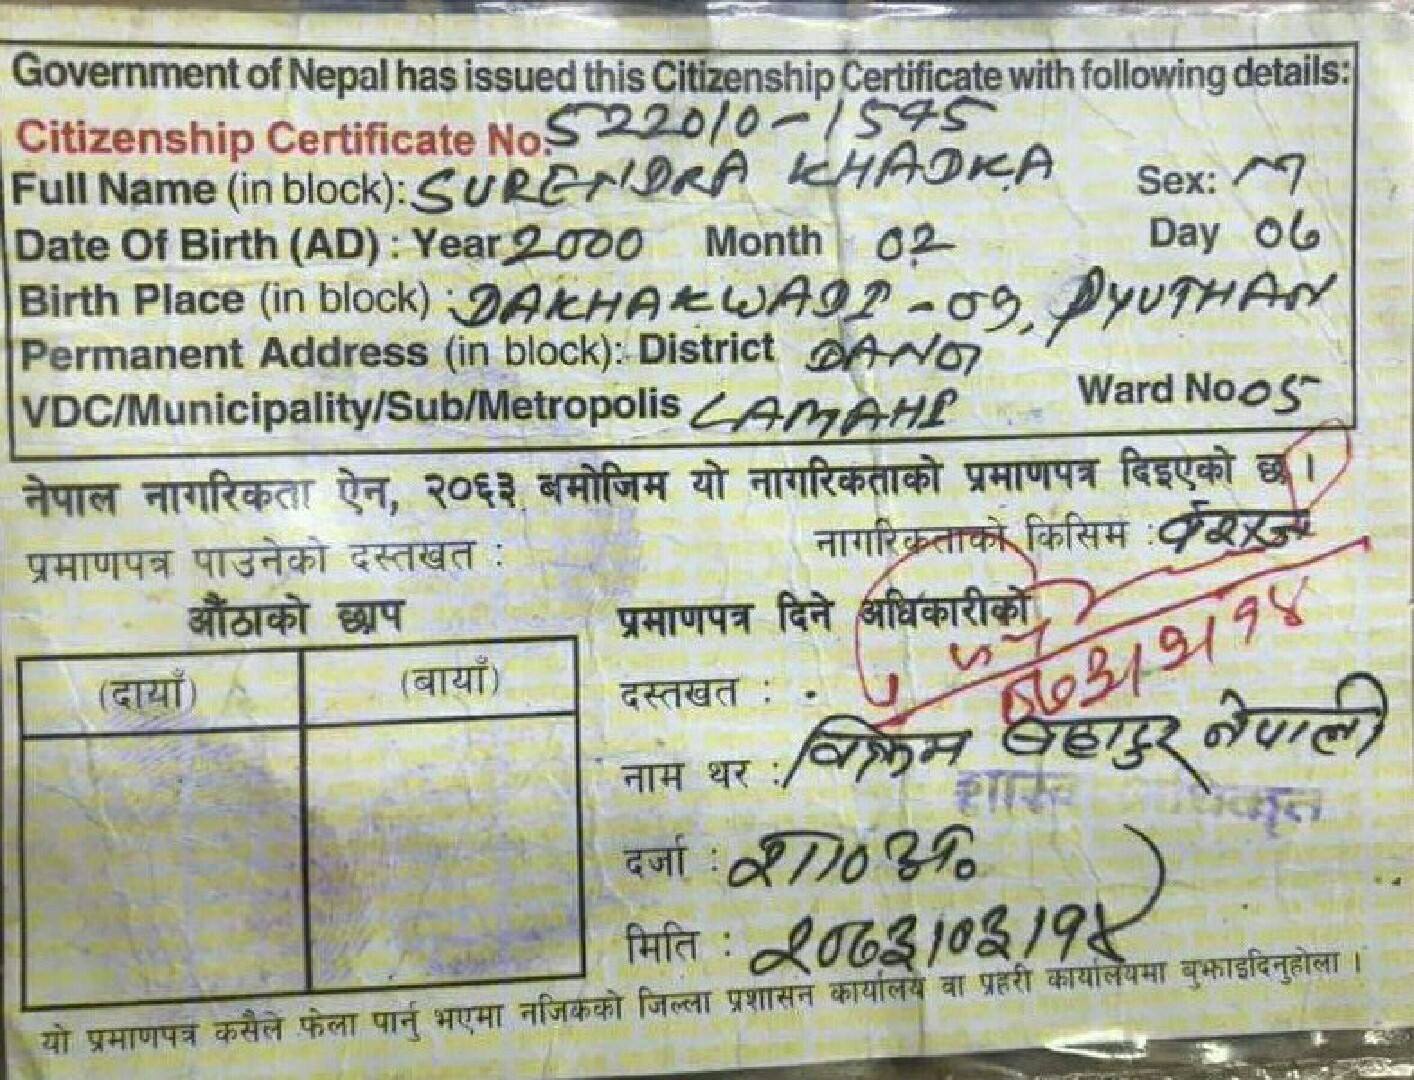 Government of Nepal has issued this Citizenship Certificate with following details:
Citizenship Certificate No: 522010-1595
Full Name (in block): SURENDRA KHADKA Sex: M
Date Of Birth (AD) : Year 2000 Month 02 Day 06
Birth Place (in block) : DAKHAKWADI - 09, PYUTHAN
Permanent Address (in block): District DANG
VDC/Municipality/Sub/Metropolis LAMAHI Ward No. 05
नेपाल नागरिकता ऐन, २०६३ बमोजिम यो नागरिकताको प्रमाणपत्र दिइएको छ ।
नागरिकताको किसिम : वंशज
प्रमाणपत्र पाउनेको दस्तखत :
औंठाको छाप
(दायाँ) (बायाँ)
प्रमाणपत्र दिने अधिकारीको
दस्तखत :
नाम थर : विक्रम बहादुर नेपाली
दर्जा : शा० अ०
मिति : २०७३/०३/१४
यो प्रमाणपत्र कसैले फेला पार्नु भएमा नजिकको जिल्ला प्रशासन कार्यालय वा प्रहरी कार्यालयमा बुझाइदिनुहोला ।